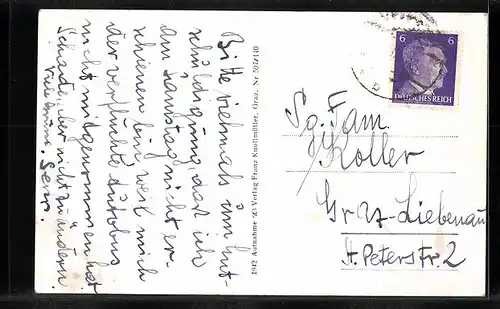 Bitte vielmals um Ent-
schuldigung, daß ich
am Samstag nicht er-
schienen bin, weil mich
der verfluchte Autobus
nicht mitgenommen hat.
Schade, aber nicht zu ändern.
Viele Grüsse
1942 Aufnahme u. Verlag Franz Knollmüller, Graz, Nr 507/130
6 6
DEUTSCHES REICH
Fam.
Koller
Graz-Liebenau
St. Peterstr. 2